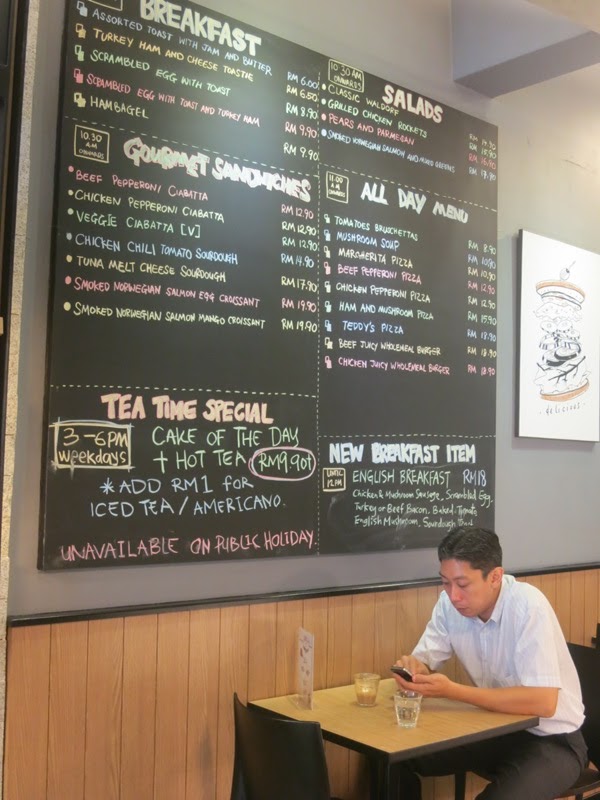 BREAKFAST
ASSORTED TOAST WITH JAM AND BUTTER RM 6.00
TURKEY HAM AND CHEESE TOASTIE RM 6.50
SCRAMBLED EGG WITH TOAST RM 8.90
SCRAMBLED EGG WITH TOAST AND TURKEY HAM RM 9.90
HAMBAGEL 9.90
10.30 AM ONWARDS
GOURMET SANDWICHES
BEEF PEPPERONI CIABATTA RM 12.90
CHICKEN PEPPERONI CIABATTA RM 12.90
VEGGIE CIABATTA [V] RM 12.90
CHICKEN CHILI TOMATO SOURDOUGH RM 14.90
TUNA MELT CHEESE SOURDOUGH RM 17.90
SMOKED NORWEGIAN SALMON EGG CROISSANT RM 19.90
SMOKED NORWEGIAN SALMON MANGO CROISSANT RM 19.90
TEA TIME SPECIAL
3-6PM WEEKDAYS
CAKE OF THE DAY
+ HOT TEA RM9.90!
*ADD RM1 FOR
ICED TEA/AMERICANO.
UNAVAILABLE ON PUBLIC HOLIDAY.
10.30 AM ONWARDS
SALADS
CLASSIC WALDORF RM
GRILLED CHICKEN ROCKETS RM
PEARS AND PARMESAN RM
SMOKED NORWEGIAN SALMON AND MIXED GREENS RM
11.00 AM ONWARDS
ALL DAY MENU
TOMATOES BRUSCHETTAS RM 8.90
MUSHROOM SOUP RM 10.90
MARGHERITA PIZZA RM 10.90
BEEF PEPPERONI PIZZA RM 12.90
CHICKEN PEPPERONI PIZZA RM 12.90
HAM AND MUSHROOM PIZZA RM 15.90
TEDDY'S PIZZA RM 18.90
BEEF JUICY WHOLEMEAL BURGER RM 18.90
CHICKEN JUICY WHOLEMEAL BURGER RM 18.90
NEW BREAKFAST ITEM
UNTIL 12PM
ENGLISH BREAKFAST RM18
Chicken & Mushroom Sausage, Scrambled Egg,
Turkey or Beef Bacon, Baked Tomato,
English Mushroom, Sourdough Toast
delicious